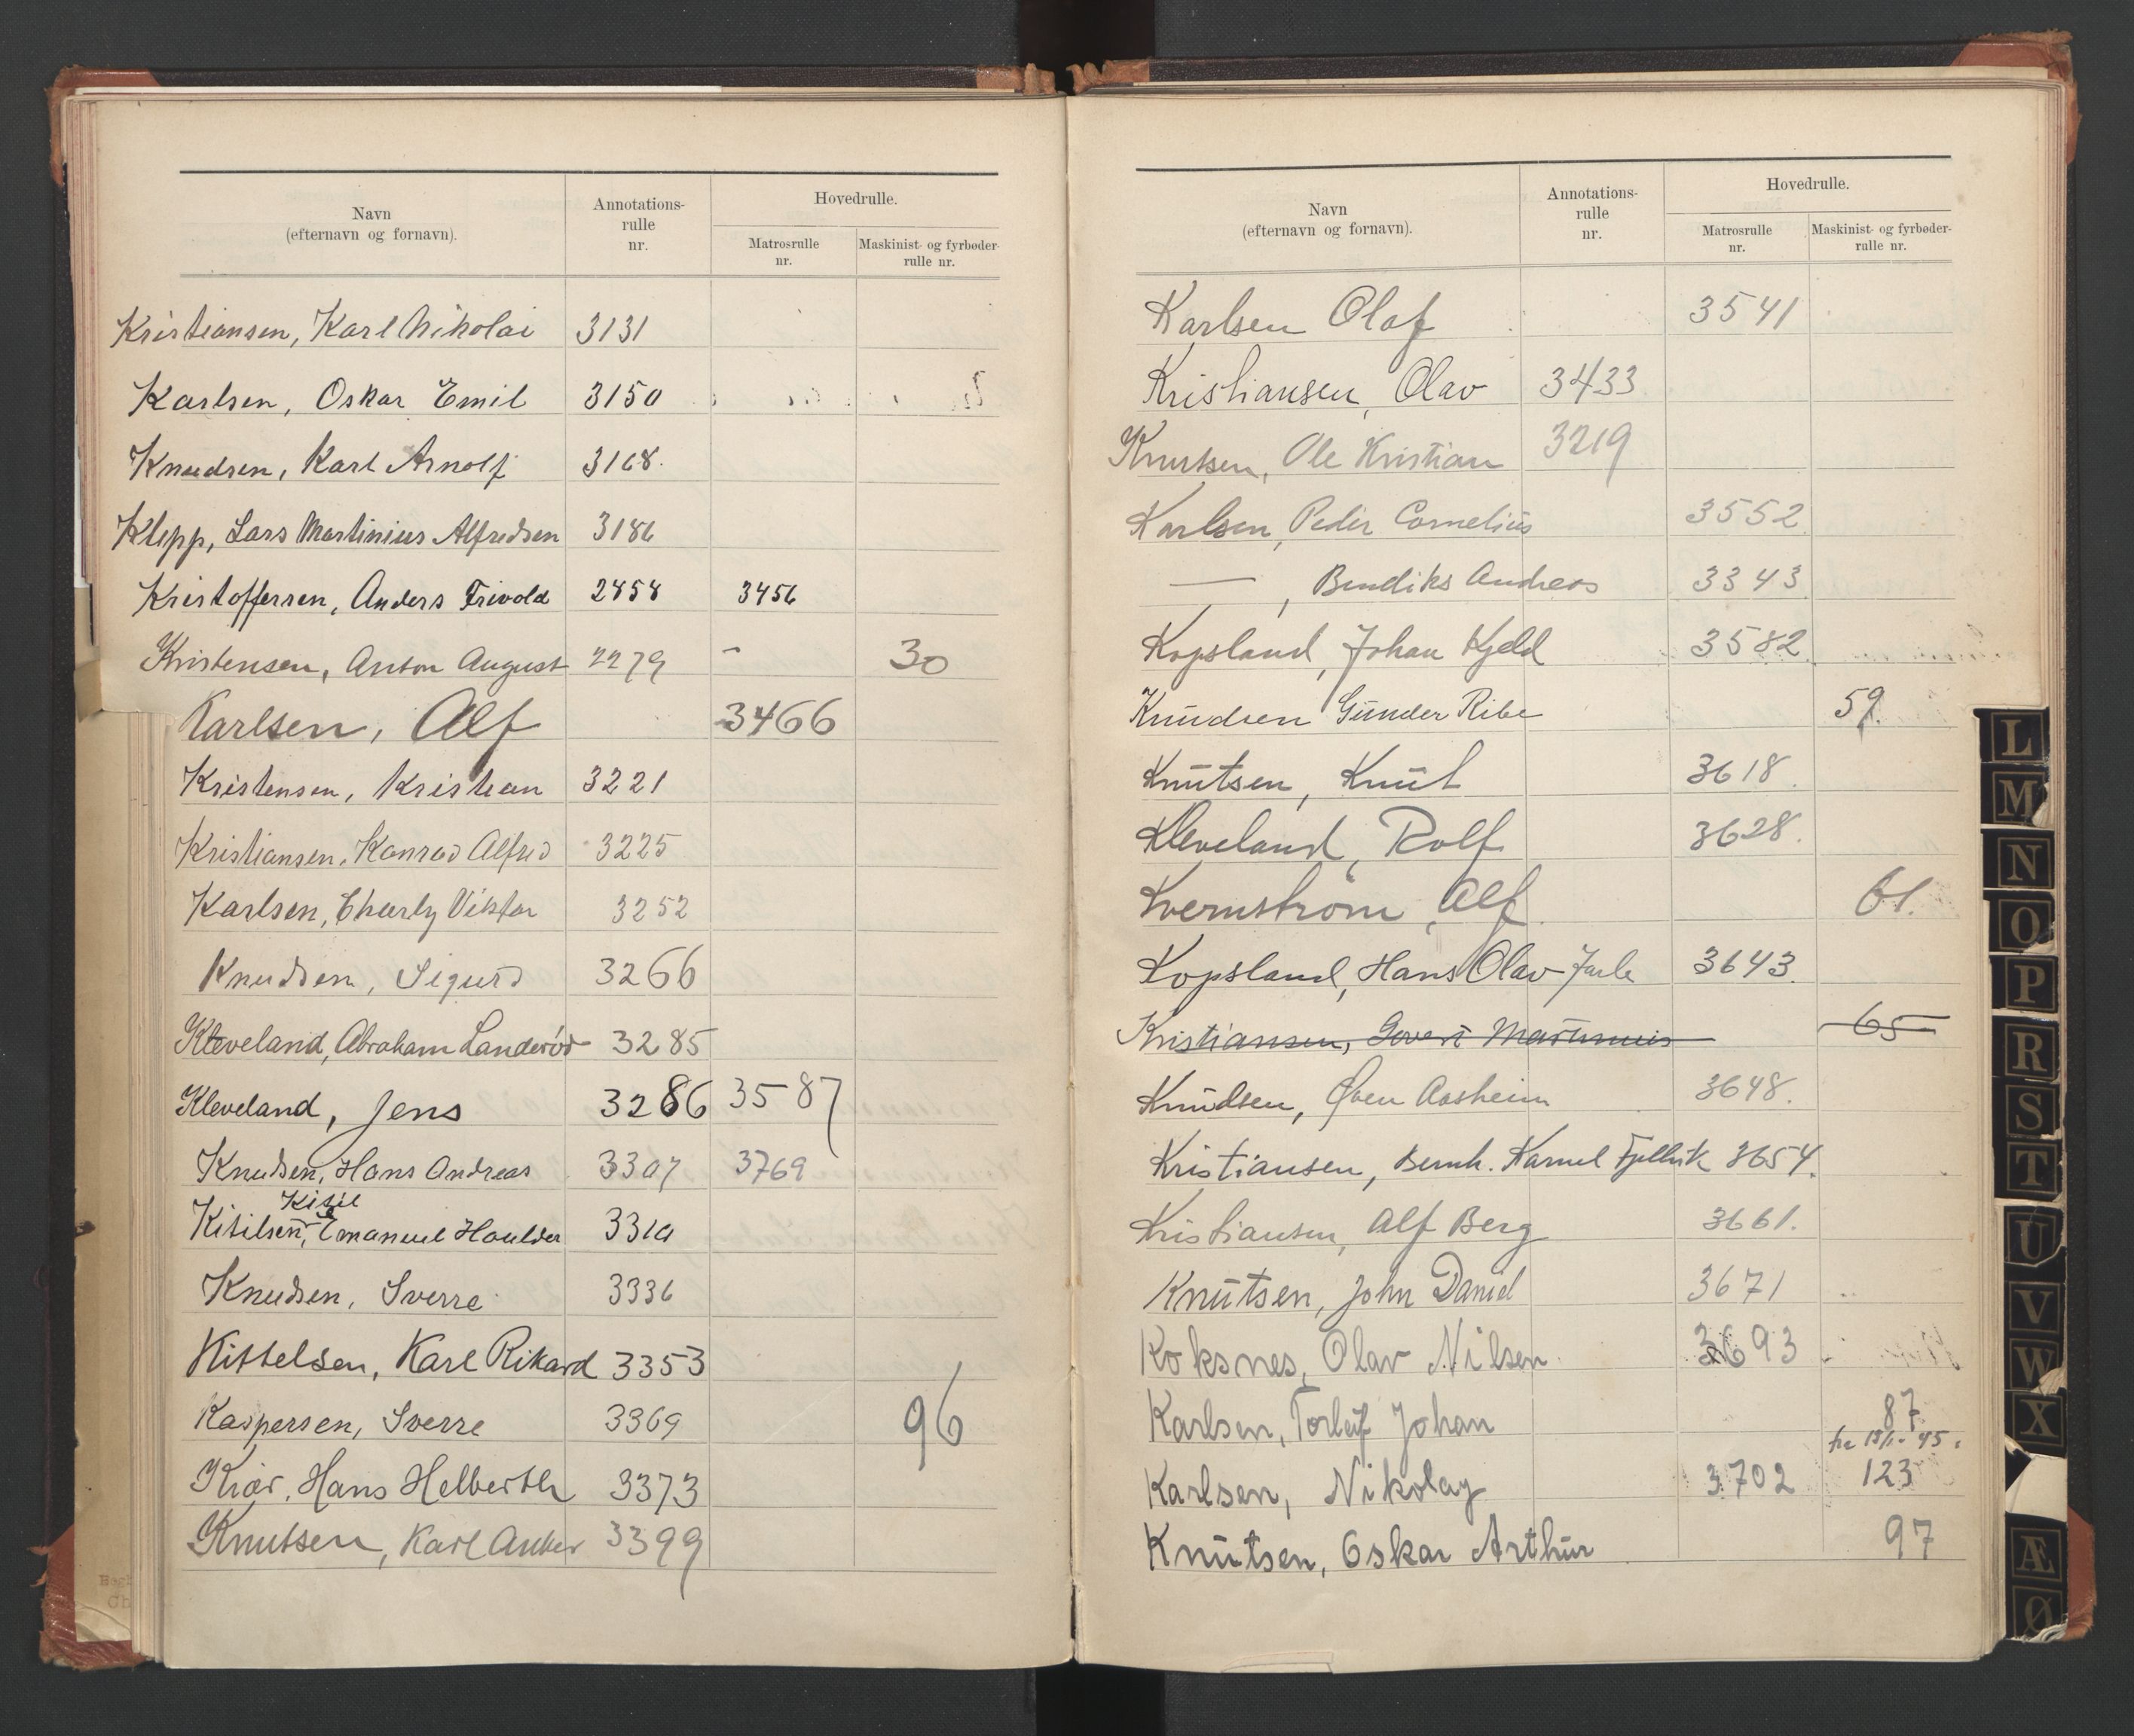 Navn
(efternavn og fornavn).
Annotations-
rulle
nr.
Hovedrulle.
Matrosrulle
nr.
Maskinist- og fyrbøder-
rulle nr.
Kristiansen, Karl Nikolai 3131
Karlsen, Oskar Emil 3150
Knudsen, Karl Arnolf 3168.
Klepp, Lars Martinius Alfredsen 3186
Kristoffersen, Anders Trivold 2858 3456
Kristensen, Anton August 2279 - 30
Karlsen, Alf 3466
Kristensen, Kristian 3221
Kristiansen, Konrad Alfred 3225
Karlsen, Charly Viktor 3252
Knudsen, Sigurd 3266
Kleveland, Abraham Landerød 3285
Kleveland, Jens 3286 3587
Knudsen, Hans Andreas 3307 3769
Kitil
Kitilsen, Emanuel Houlder 3310
Knudsen, Sverre 3336
Kittelsen, Karl Rikard 3353
Kaspersen, Sverre 3369 96
Kiær, Hans Helberth 3373
Knutsen, Karl Anker 3399
Navn
(efternavn og fornavn).
Annotations-
rulle
nr.
Hovedrulle.
Matrosrulle
nr.
Maskinist- og fyrbøder-
rulle nr.
Karlsen Olaf 3541
Kristiansen, Olav 3433
Knutsen, Ole Kristian 3219
Karlsen, Peder Cornelius 3552.
— , Bendiks Andreas 3343.
Kopsland, Johan Kjeld 3582.
Knudsen Gunder Ribe 59.
Knutsen, Knut 3618.
Kleveland, Rolf 3628.
Kvernstrøm, Alf 61.
Kopsland, Hans Olav Jarle 3643.
Kristiansen, Govert Martinius 65
Knudsen, Øven Aasheim 3648.
Kristiansen, Bernh. Karnel Fjellvik 3654.
Kristiansen, Alf Berg 3661.
Knutsen, John Daniel 3671
Koksnes, Olav Nilsen 3693
Karlsen, Torleif Johan 87
fra 18/1-45.
Karlsen, Nikolay 3702 123
Knutsen, Oskar Arthur 97
L
M
N
O
P
R
S
T
U
V
W
X
Æ
Ø